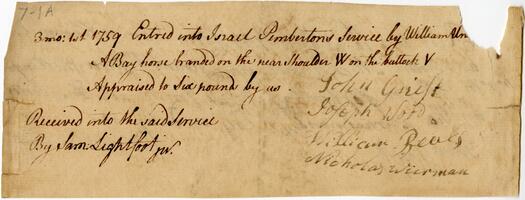 7-1A
3mo: 1st 1759 Entred into Israel Pemberton's Service by William Un
A Bay horse branded on the near Shoulder W on the buttock V
Appraised to Six pound by us.
John Griest
Joseph Wood
Received into the said Service
William Beals
By Sam: Lightfoot jur.
Nicholas Wierman